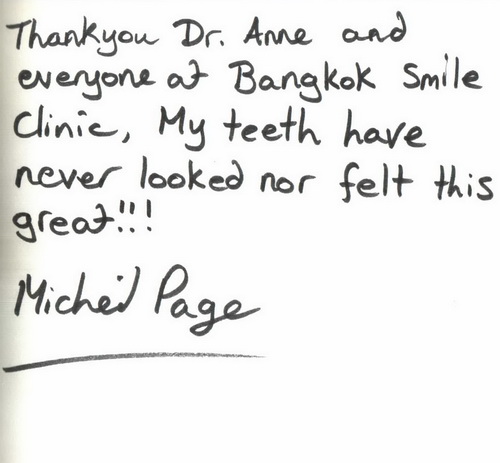 Thankyou Dr. Anne and
everyone at Bangkok Smile
Clinic, My teeth have
never looked nor felt this
great!!!
Page